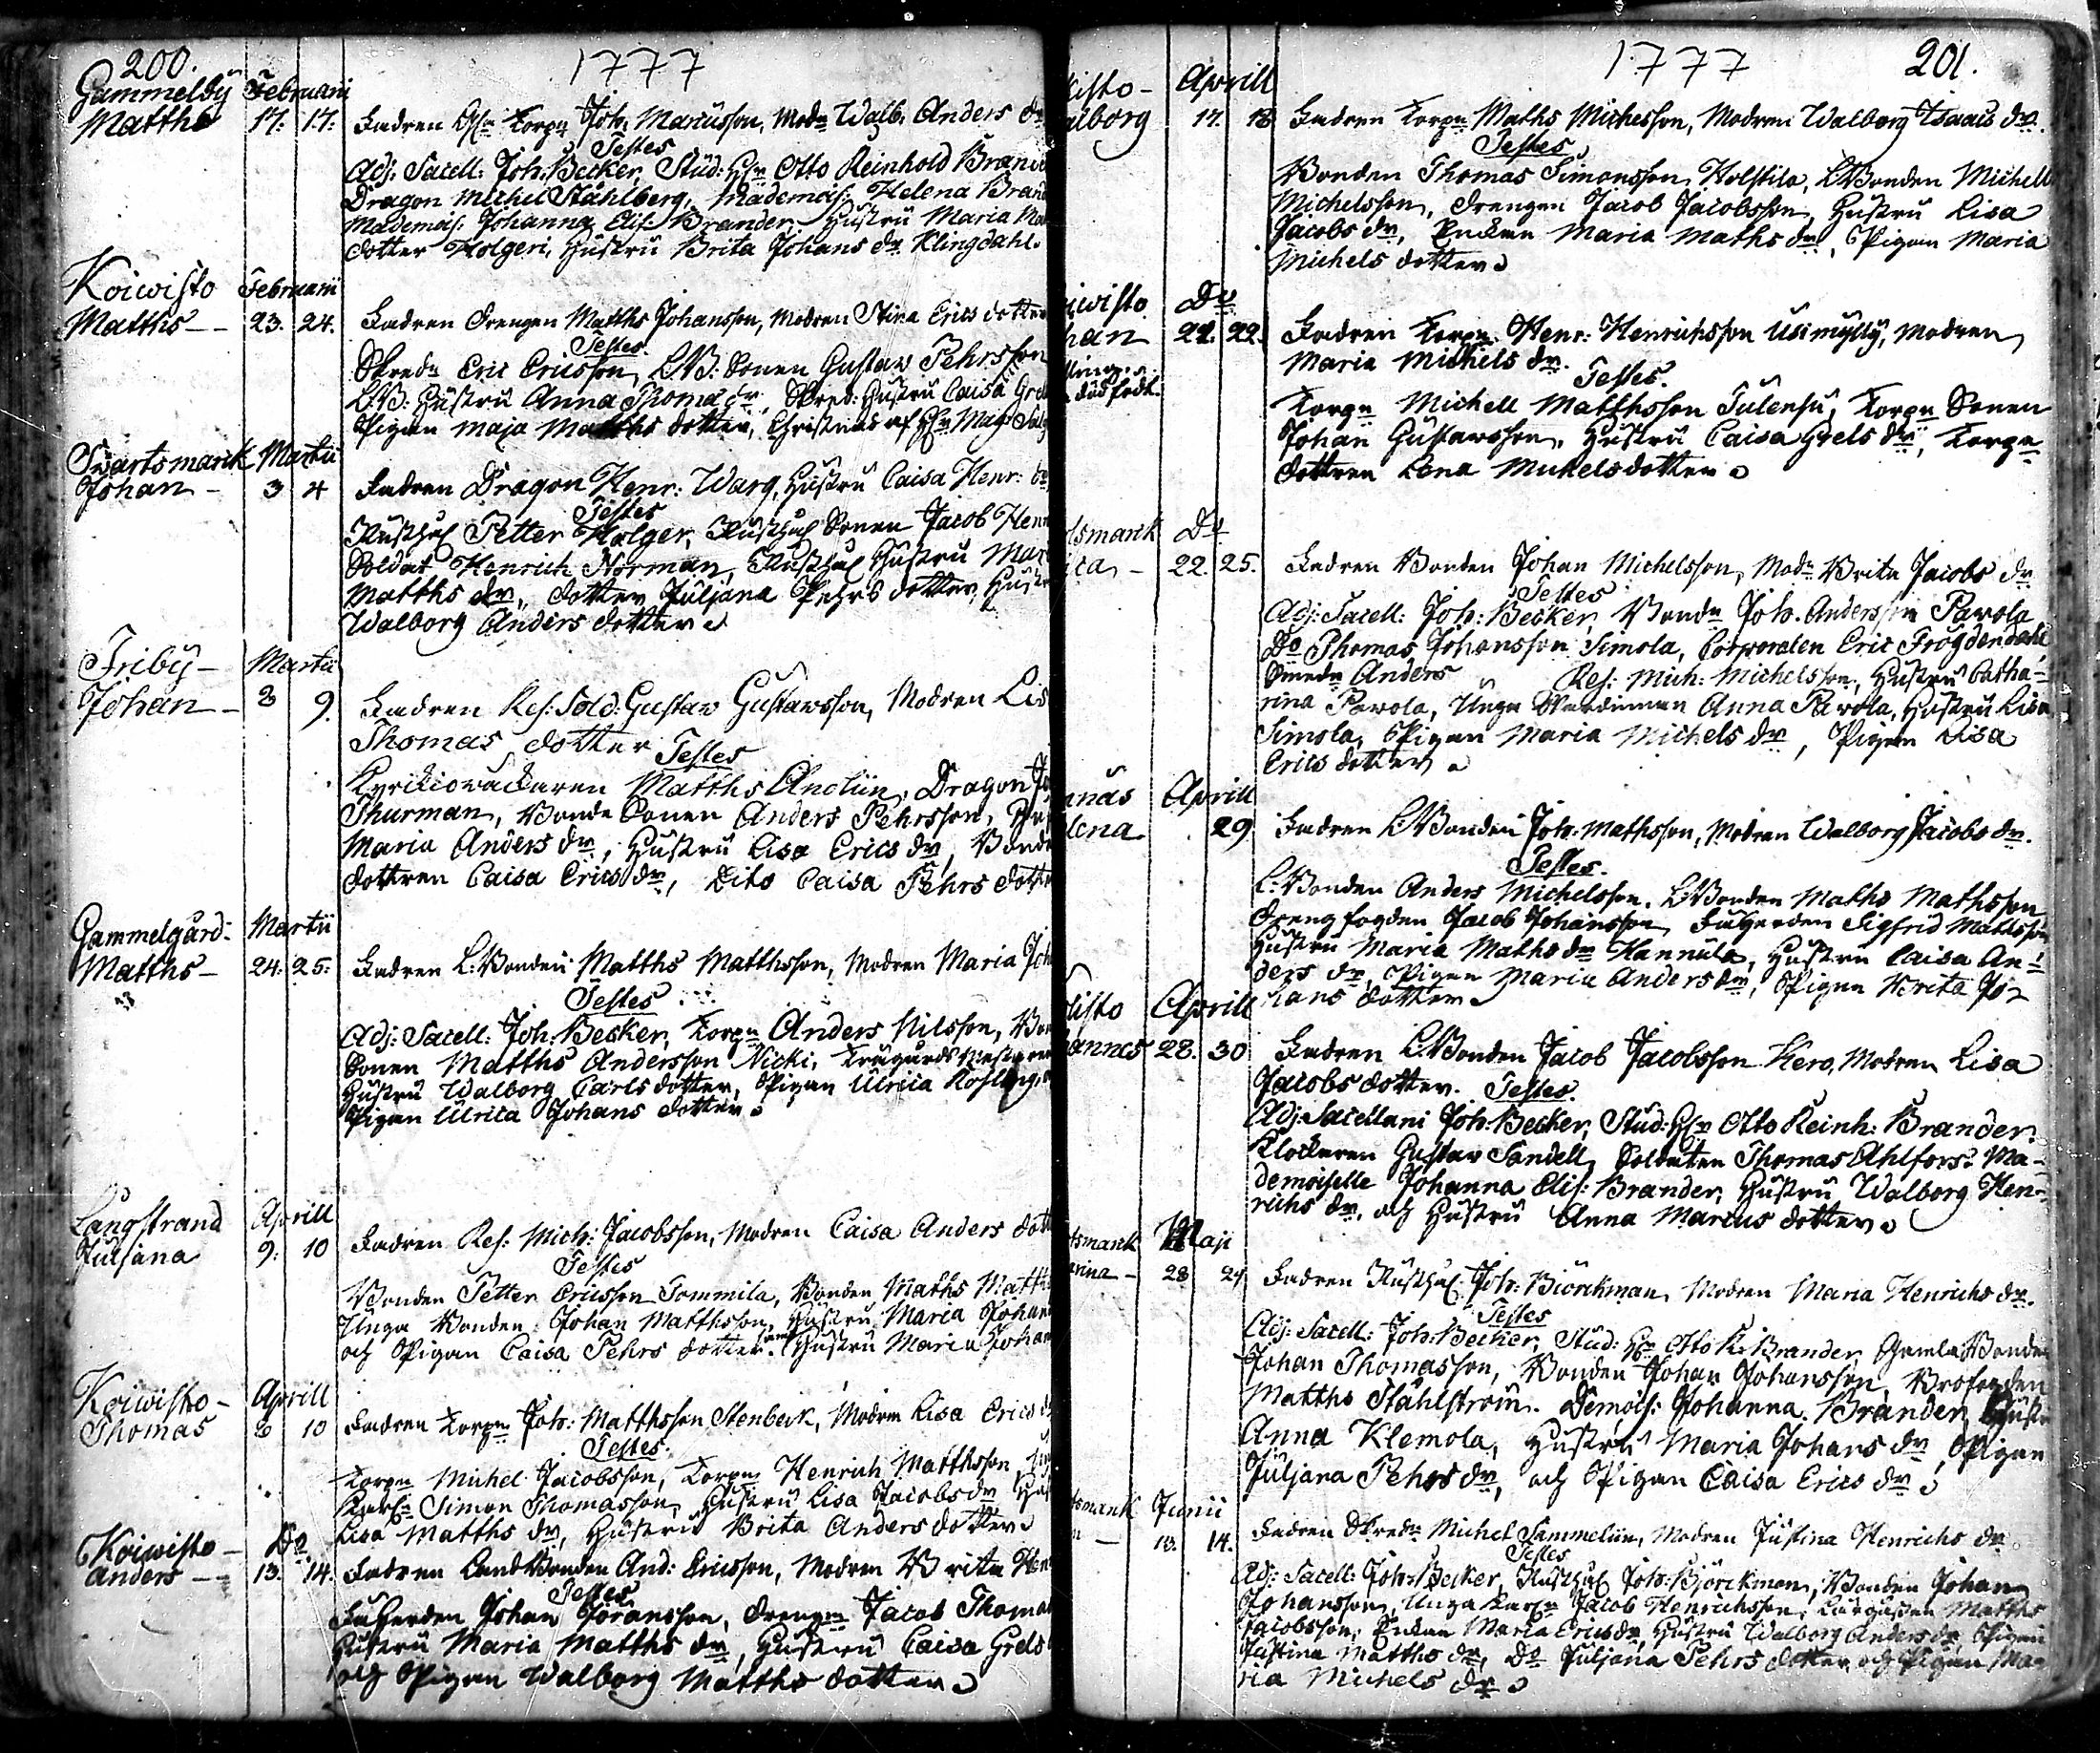 200. 1777
Gammelby Februarii
Matths 17. 17. Fadren Korpn Joh. Marcusson, Modn Walb. Anders dr
Testes
Adj. Sacell: Joh: Becker, Stud: Hr Otto Reinhold Brand
Dragon Michel Ståhlberg, Mademois: Helena Brand
Mademois: Johanna Elis: Brander. Hustru Maria
dotter Holgeri, Hustru Brita Johans dr Klingdahl.
Koiwisto Februarii
Matths 23. 24. Fadren Drengen Matths Johansson, Modren Stina Erics dotter
Testes.
Skredn Eric Ericsson, LB: Sonen Gustaw Pehrsson
LB: Hustru Anna Thomæ dr, Skred: Hustru Caisa Grel
Pigan Maja Matths dotter, Christnad af Hr Mag
Swartsmark Martii
Johan - 3 4 Fadren Dragon Henr: Warg, Hustru Caisa Henr: dr
Testes
Rusthål Petter Holger, Rusthål Sonen Jacob Hen
Soldat Henrich Norman, Rusthål Hustru Mar
Matths dr, dotter Juljana Pehrs dotter, Hust
Walborg Anders dotter
Friby - Martii
Johan - 8 9. Fadren Res: Sold: Gustaw Gustawsson, Modren Lis
Thomas dotter Testes
Kyrkiowacktaren Matths Anolin, Dragon J
Thurman, Bonde Sonen Anders Pehrsson,
Maria Anders dr, Hustru Lisa Erics dr, Bonde
dottren Caisa Erics dr, Dito Caisa Pehrs dott
Gammelgård: Martii
Matths - 24. 25. Fadren L: Bonden Matths Matthsson, Modren Maria Joh
Testes
Adj: Sacell: Joh: Becker, Korpn Anders Nilsson, Bon
Sonen Matths Andersson Nicki,
Hustru Walborg Carls dotter, Pigan Ulrica
Pigan Ulrica Johans dotter
Långstrand Aprill
Juljana 9. 10 Fadren Res: Mich: Jacobsson, Modren Caisa Anders dott
Testes
Bonden Petter Ericsson Tommila, Bonden Maths Matth
Unga Bonden Johan Matthsson, Hustru Maria Johan
och Pigan Caisa Pehrs dotter, samt Hustru Maria Johan
Koiwisto - Aprill
Thomas 8 10 Fadren Korpn Joh: Matthsson Stenbeck, Modren Lisa Erics dr
Testes.
Korpn Michel Jacobsson, Korpn Henrich Matthsson
Simon Thomasson, Hustru Lisa Jacobs dr
Lisa Matths dr, Hustru Brita Anders dotter
Koiwisto - Do
Anders - 13. 14. Fadren Land Bonden And: Ericsson, Modren Brita Hen
Testes
Johan Joransson, Drengn Jacob Thomas
Hustru Maria Matths dr, Hustru Caisa Grels
och Pigan Walborg Matths dotter
1777 201.
kisto - Aprill
alborg 17. 18 Fadren Korpn Maths Michelsson, Modren Walborg Isaacs dr.
Testes
Bonden Thomas Simonsson, Holstila, L Bonden Michell
Michelsson, Drengen Jacob Jacobsson, Hustru Lisa
Jacobs dr, Enkan Maria Maths dr, Pigan Maria
Michels dotter
iwisto Do
han 22. 22. Fadren Korpn: Henr: Henrichsson Usimylly, Modren
dödfödt. Maria Michels dr. Testes.
Korpn Michell Matthsson Tulensu, Korpn Sonen
Johan Gustawsson, Hustru Caisa Grels dr, Korpn
dottren Lena Michelsdotter
tsmark Do
ita - 22. 25. Fadren Bonden Johan Michelsson, Modn Brita Jacobs dr
Testes
Adj: Sacell: Joh: Becker, Bondn Joh. Andersson Parola
Do Thomas Johansson Simola, Corporalen Eric Frögdendahl
Smedn Anders Res: Mich: Michelsson, Hustru Catha-
rina Parola, Unga Wärdinnan Anna Parola, Hustru Lisa
Simola, Pigan Maria Michels dr, Pigan Lisa
Erics dotter
näs Aprill
lena 29. Fadren L Bonden Joh: Mathsson, Modren Walborg Jacobs dr.
Testes.
L: Bonden Anders Michelsson, L Bonden Maths Mathsson
Dreng fogden Jacob Johansson, Sigfrid Mathsson
Hustru Maria Maths dr Hannula, Hustru Caisa An-
ders dr, Pigan Maria Anders dr, Pigan Brita Jo-
hans dotter
isto Aprill
annes 28. 30 Fadren L Bonden Jacob Jacobsson Kero, Modren Lisa
Jacobs dotter. Testes.
Adj: Sacellani Joh: Becker, Stud: Hr Otto Reinh: Brander.
Klockaren Gustaw Sandell, Soldaten Thomas Ahlfors: Ma-
demoiselle Johanna Elis: Brander, Hustru Walborg Hen-
richs dr, och Hustru Anna Marcus dotter
tsmark Maji
arina - 28 29 Fadren Rusthål. Joh: Biörckman, Modren Maria Henrichs dr.
Testes
Adj: Sacell: Joh: Becker, Stud: Hr Otto R: Brander, Gamla Bonden
Johan Thomasson, Bonden Johan Johansson, Profossen
Matths Ståhlström. Demois: Johanna Brander, Hustr
Anna Klemola, Hustru Maria Johans dr, Pigan
Juljana Pehrs dr, och Pigan Caisa Erics dr
tsmark Junii
13. 14. Fadren Skredn Michel Sammelin, Modren Justina Henrichs dr
Testes
Adj: Sacell: Joh: Becker, Rusthål Joh: Björckman, Bonden Johan
Johansson, Unga Jacob Henrichsson, Matths
Jacobsson, Enkan Maria Erics dr, Hustru Walborg Anders dr, Pigan
Justina Matths dr, Do Juljana Pehrs dotter och Pigan Ma-
ria Michels dr